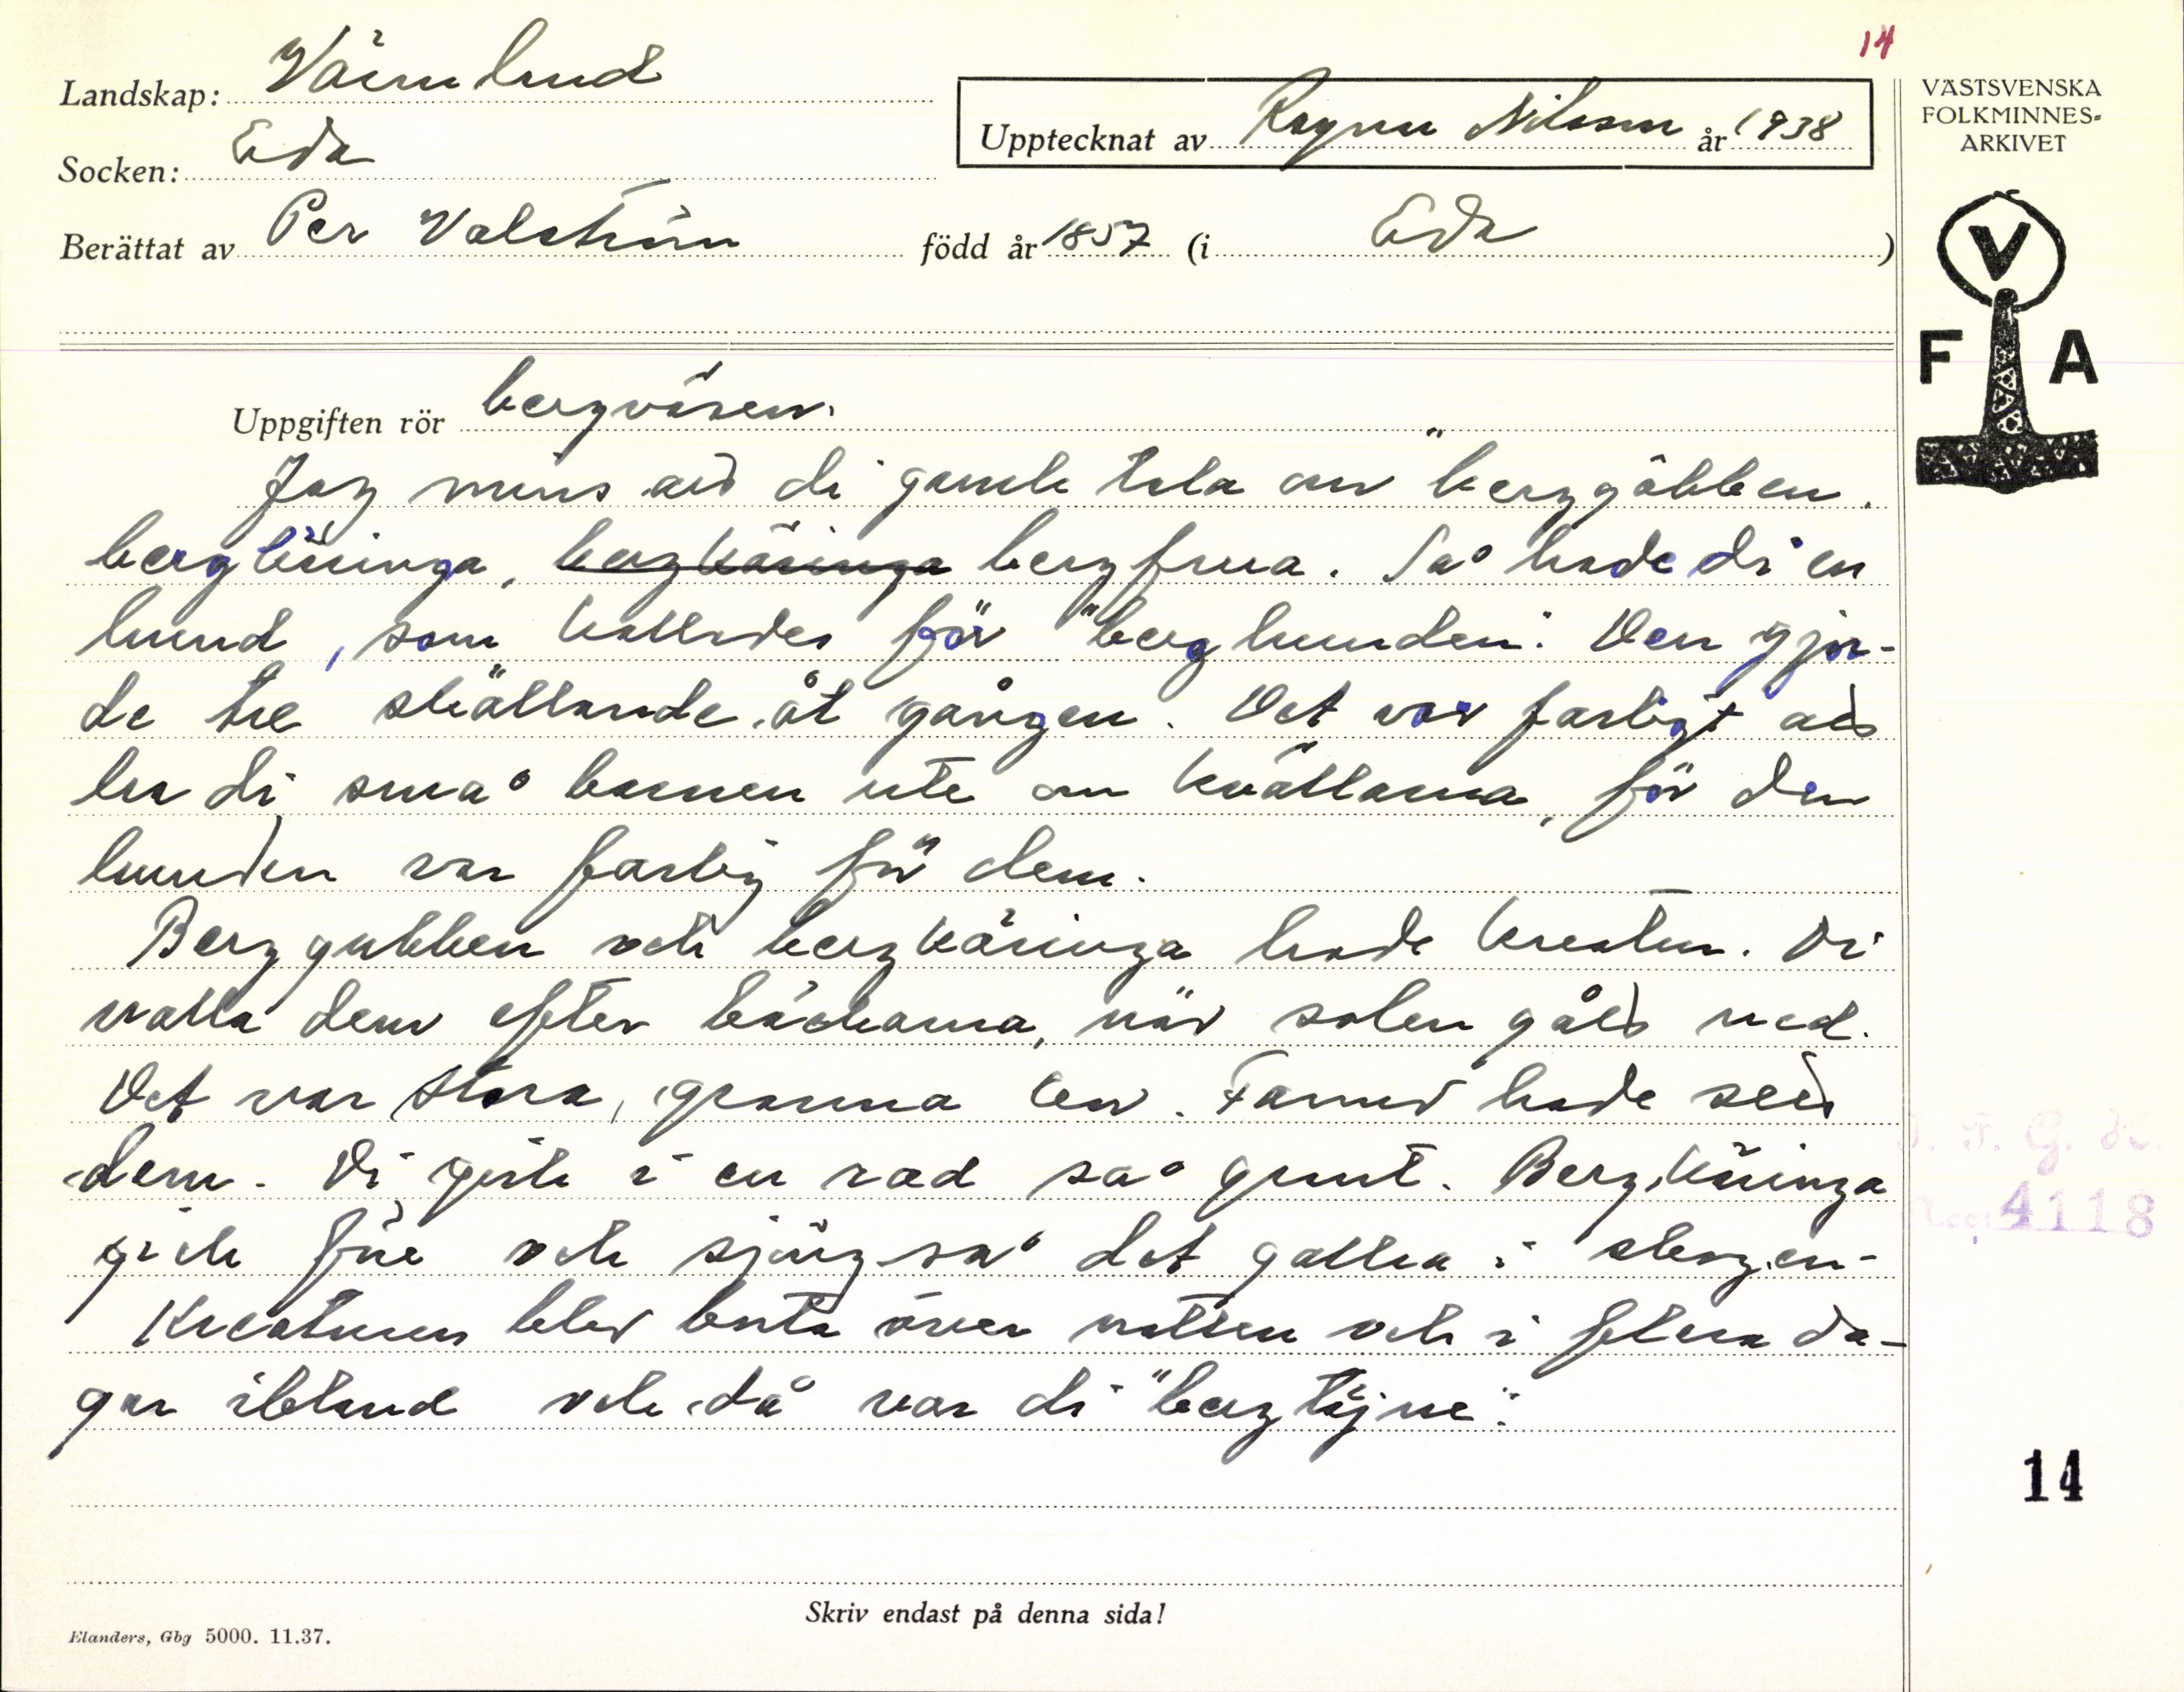 14
Landskap: Värmland
Socken: Eda
Upptecknat av Ragnar Nilsson år 1938
Berättat av Per Valström född år 1857 (i Eda)
VÄSTSVENSKA
FOLKMINNES-
ARKIVET
V
F A
Uppgiften rör bergväsen.
Jag mins att di gamle tala om "berggubben,
bergkäringa, bergkäringa bergfrua. Så hade di en
hund, som kallades för "berghunden". Den gjor-
de tre skällande åt gången. Det var farligt att
ha di små barnen ute om kvällarna, för den
hunden var farlig för dem.
Berggubben och bergkäringa hade kreatur. Di
valla dem efter bäckarna, när solen gått ned.
Det var stora, granna kor. Farmor hade sett
dem. Di gick i en rad så grant. Bergkäringa
gick före och sjöng så det gallra i skogen.
Kreaturen blev borta över natten och i flera da-
gar ibland och då var di "bergtagne".
4118
14
Skriv endast på denna sida!
Elanders, Gbg 5000. 11.37.